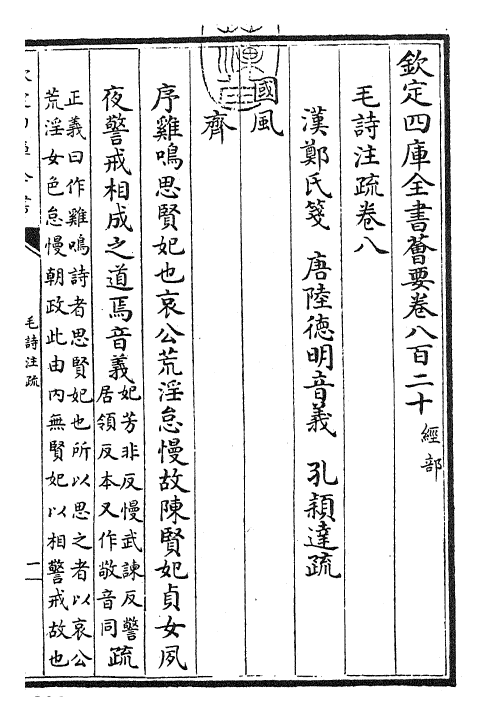 欽定四庫全書薈要卷八百二十 經部
毛詩注疏卷八
漢鄭氏箋 唐陸德明音義 孔穎達疏
國風
齊
序雞鳴思賢妃也哀公荒淫怠慢故陳賢妃貞女夙
夜警戒相成之道焉音義妃芳非反慢武諫反警
居領反本又作敬音同疏
正義曰作雞鳴詩者思賢妃也所以思之者以哀公
荒淫女色怠慢朝政此由內無賢妃以相警戒故也
毛詩注疏
一